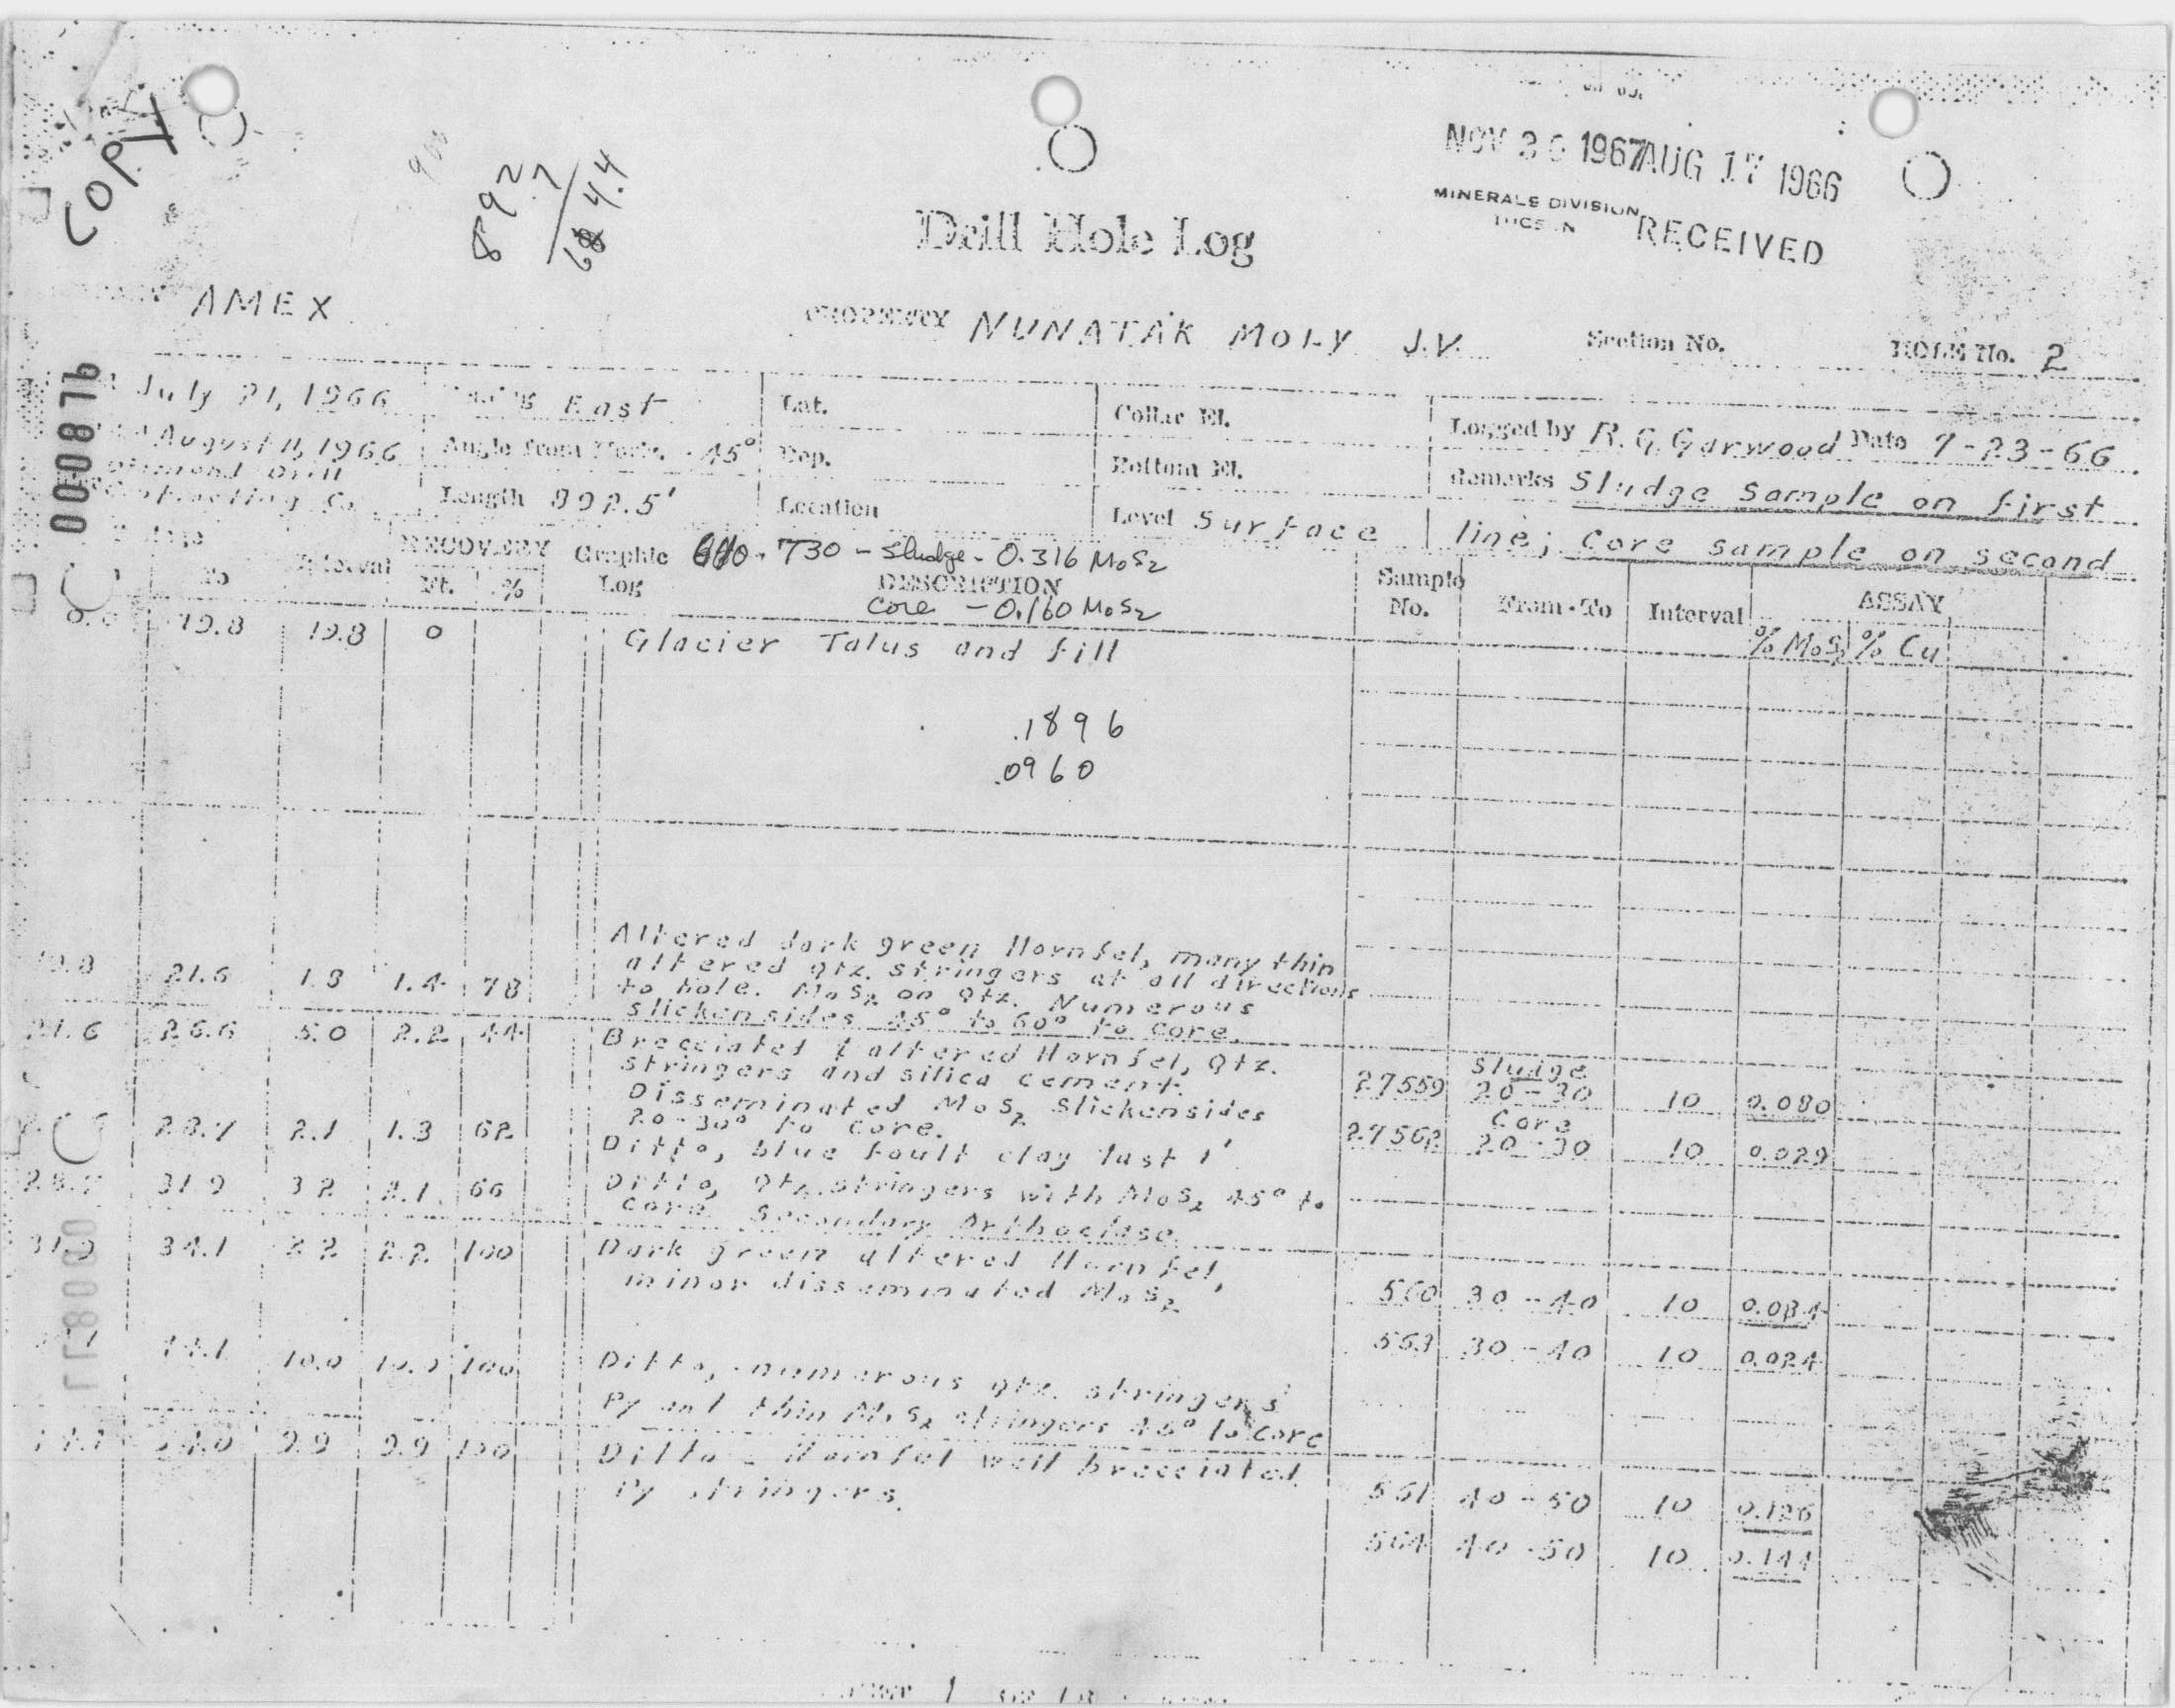 COPY
892.7 / 684.4
NOV 30 1967 AUG 17 1966
MINERALS DIVISION
RECEIVED
Drill Hole Log
AMEX PROPERTY NUNATAK MOLY J.V. Section No. HOLE No. 2
000876
July 21, 1966 East Lat. Collar El. Logged by R. G. Garwood Date 7-23-66
August 11, 1966 Angle from Horiz. -45° Dep. Bottom El. Remarks Sludge sample on first
Diamond Drill
Contracting Co. Length 892.5' Location Level Surface line; core sample on second
To Interval RECOVERY Ft. % Graphic Log DESCRIPTION Sample No. From-To Interval ASSAY
730 - Sludge - 0.316 MoS2
Core - 0.160 MoS2
% MoS2 % Cu
0.0 19.8 19.8 0 Glacier Talus and fill
.1896
.0960
19.8 21.6 1.8 1.4 78 Altered dark green Hornfel, many thin
altered qtz. stringers at all directions
to hole. MoS2 on qtz. Numerous
slickensides 45° to 60° to core.
21.6 26.6 5.0 2.2 44 Brecciated & altered Hornfel, qtz.
stringers and silica cement.
Disseminated MoS2 Slickensides
20-30° to core.
Sludge
27559 20-30 10 0.080
Core
27562 20-30 10 0.029
28.7 2.1 1.3 62 Ditto, blue fault clay last 1'
28.7 31.9 3.2 2.1 66 Ditto, qtz. stringers with MoS2 45° to
core Secondary Orthoclase.
31.9 34.1 2.2 2.2 100 Dark green altered Hornfel,
minor disseminated MoS2
560 30-40 10 0.084
563 30-40 10 0.024
000877
44.1 10.0 10.0 100 Ditto, numerous qtz. stringers
Py and thin MoS2 stringers 45° to core
44.1 54.0 9.9 9.9 100 Ditto - Hornfel well brecciated.
Py stringers.
561 40-50 10 0.126
564 40-50 10 0.144
1